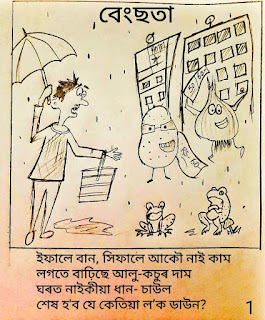 বেংছতা
ইফালে বান, সিফালে আকৌ নাই কাম
লগতে বাঢ়িছে আলু-কচুৰ দাম
ঘৰত নাইকীয়া ধান- চাউল
শেষ হ'ব যে কেতিয়া ল'ক ডাউন?
1